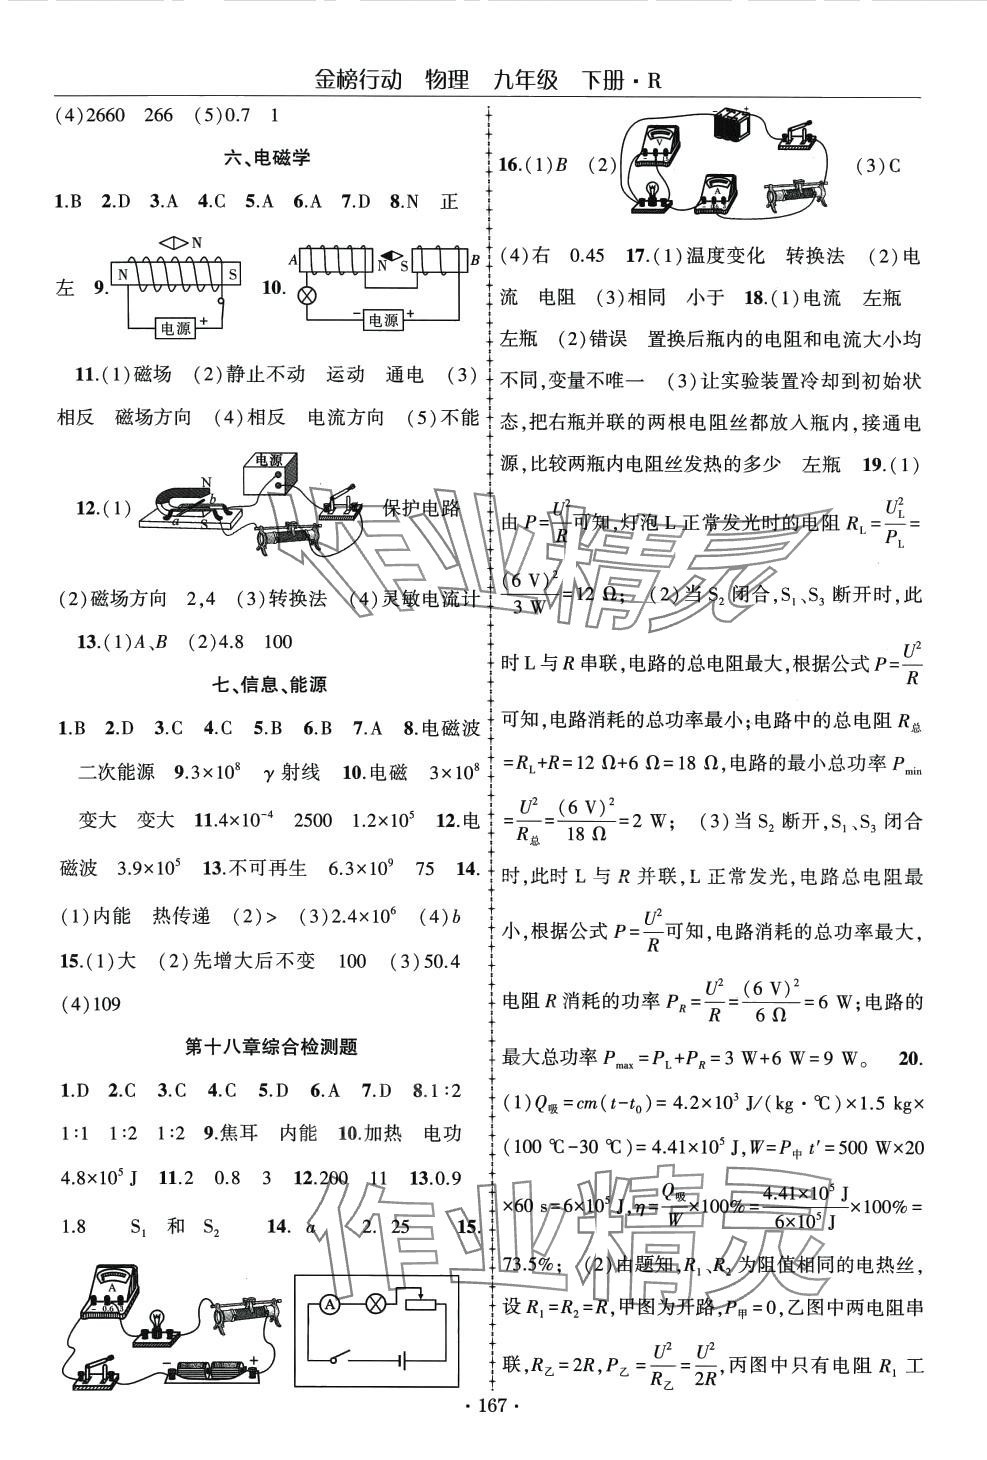 金榜行动　物理　九年级　下册·R
(4)2660　266　(5)0.7　1
六、电磁学
1.B　2.D　3.A　4.C　5.A　6.A　7.D　8.N　正
左　9.　N　N　S　电源　+　10.　A　N　S　B　−　电源　+
11.(1)磁场　(2)静止不动　运动　通电　(3)
相反　磁场方向　(4)相反　电流方向　(5)不能
12.(1)　电源　N　a　b　S　保护电路
(2)磁场方向　2,4　(3)转换法　(4)灵敏电流计
13.(1)A、B　(2)4.8　100
七、信息、能源
1.B　2.D　3.C　4.C　5.B　6.B　7.A　8.电磁波
二次能源　9.3×10⁸　γ射线　10.电磁　3×10⁸
变大　变大　11.4×10⁻⁴　2500　1.2×10⁵　12.电
磁波　3.9×10⁵　13.不可再生　6.3×10⁹　75　14.
(1)内能　热传递　(2)>　(3)2.4×10⁶　(4)b
15.(1)大　(2)先增大后不变　100　(3)50.4
(4)109
第十八章综合检测题
1.D　2.C　3.C　4.C　5.D　6.A　7.D　8.1∶2
1∶1　1∶2　1∶2　9.焦耳　内能　10.加热　电功
4.8×10⁵ J　11.2　0.8　3　12.200　11　13.0.9
1.8　S₁ 和 S₂　14. a　2.25　15.
− 0.6 3　−　+　A
16.(1)B　(2)　−　+　V　A　(3)C
(4)右　0.45　17.(1)温度变化　转换法　(2)电
流　电阻　(3)相同　小于　18.(1)电流　左瓶
左瓶　(2)错误　置换后瓶内的电阻和电流大小均
不同,变量不唯一　(3)让实验装置冷却到初始状
态,把右瓶并联的两根电阻丝都放入瓶内,接通电
源,比较两瓶内电阻丝发热的多少　左瓶　19.(1)
由 P=U²/R可知,灯泡 L 正常发光时的电阻 R_L=U_L²/P_L=
(6 V)²/3 W=12 Ω;　(2)当 S₂ 闭合,S₁、S₃ 断开时,此
时 L 与 R 串联,电路的总电阻最大,根据公式 P=U²/R
可知,电路消耗的总功率最小;电路中的总电阻 R总
=R_L+R=12 Ω+6 Ω=18 Ω,电路的最小总功率 P_min
=U²/R总=(6 V)²/18 Ω=2 W;　(3)当 S₂ 断开,S₁、S₃ 闭合
时,此时 L 与 R 并联,L 正常发光,电路总电阻最
小,根据公式 P=U²/R可知,电路消耗的总功率最大,
电阻 R 消耗的功率 P_R=U²/R=(6 V)²/6 Ω=6 W;电路的
最大总功率 P_max=P_L+P_R=3 W+6 W=9 W。　20.
(1)Q吸=cm(t-t₀)=4.2×10³ J/(kg·℃)×1.5 kg×
(100 ℃-30 ℃)=4.41×10⁵ J,W=P中 t′=500 W×20
×60 s=6×10⁵ J,η=Q吸/W×100%=4.41×10⁵ J/6×10⁵ J×100%=
73.5%;　(2)由题知,R₁、R₂ 为阻值相同的电热丝,
设 R₁=R₂=R,甲图为开路,P甲=0,乙图中两电阻串
联,R乙=2R,P乙=U²/R乙=U²/2R,丙图中只有电阻 R₁ 工
·167·
作业精灵
作业精灵